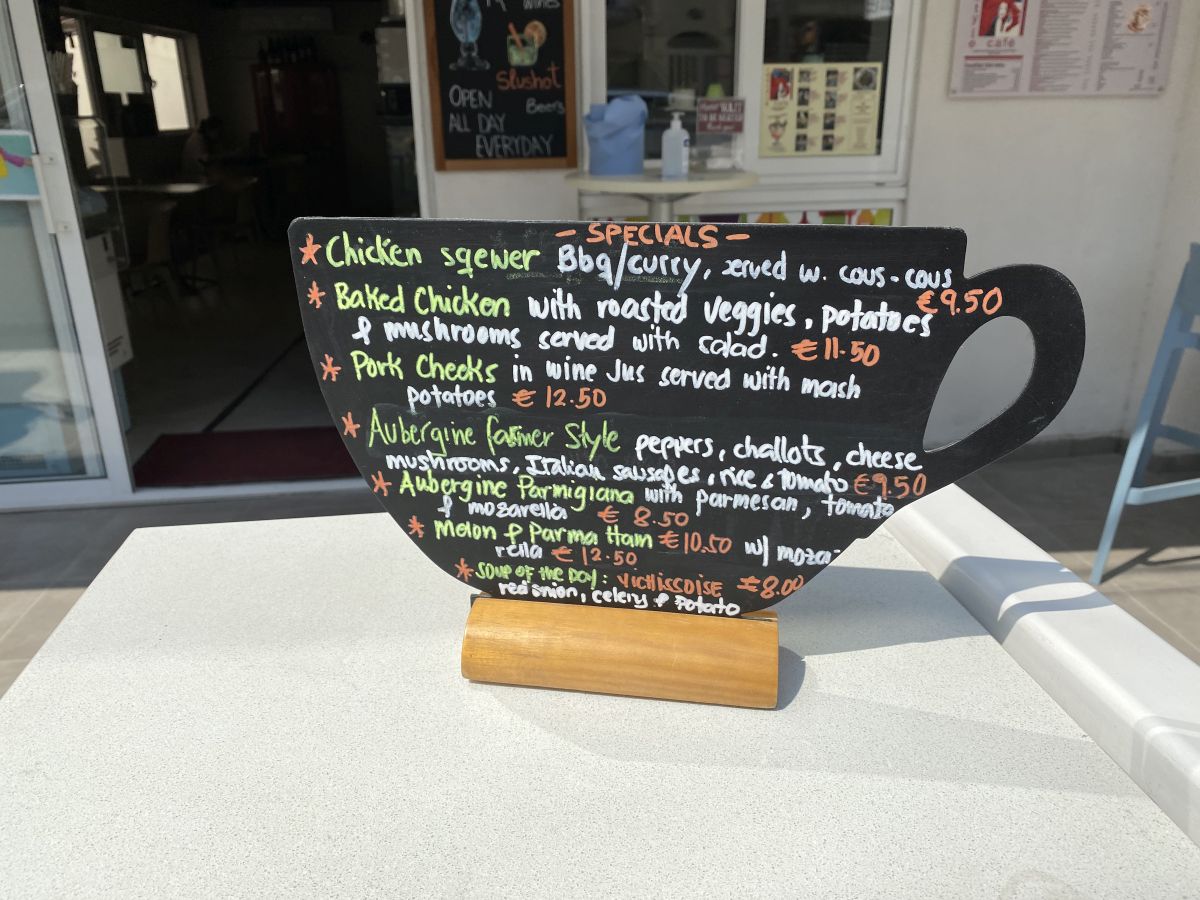 wines
Slushot
OPEN
Beers
ALL DAY
EVERYDAY
WAIT
TO BE SEATED
café
- SPECIALS -
* Chicken sqewer Bbq/curry, served w. cous-cous
€9.50
* Baked Chicken with roasted veggies, potatoes
& mushrooms served with salad. € 11.50
* Pork Cheeks in wine Jus served with mash
potatoes € 12.50
* Aubergine farmer Style peppers, challots, cheese
mushrooms, Italian sausages, rice & tomato €9.50
* Aubergine Parmigiana with parmesan, tomato
& mozarella € 8.50
* Melon & Parma Ham €10.50 w/ moza-
rella € 12.50
* SOUP OF THE DAY: VICHISSOISE €8.00
red onion, celery & potato